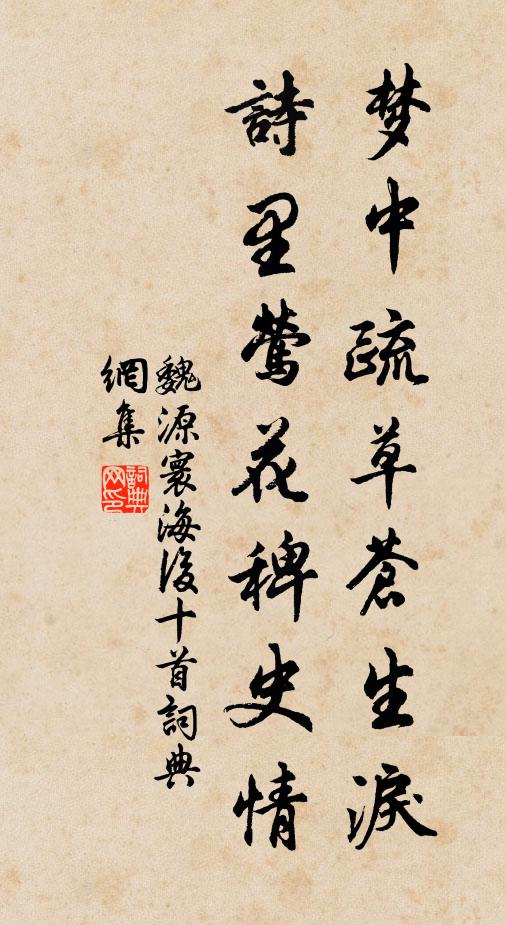 梦中疏草蒼生淚
詩里鶯花稗史情
魏源寰海後十首詞典
網集
詞典
网印